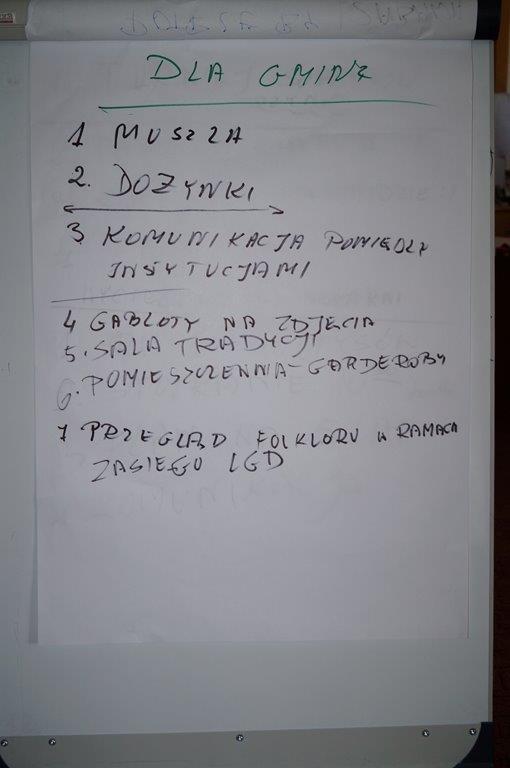 DLA GMINY
1 MUSZLA
2. DOŻYNKI
3 KOMUNIKACJA POMIĘDZY
INSTYTUCJAMI
4 GABLOTY NA ZDJĘCIA
5. SALA TRADYCJI
6. POMIESZCZENIA - GARDEROBY
7 PRZEGLĄD FOLKLORU W RAMACH
ZASIĘGU LGD